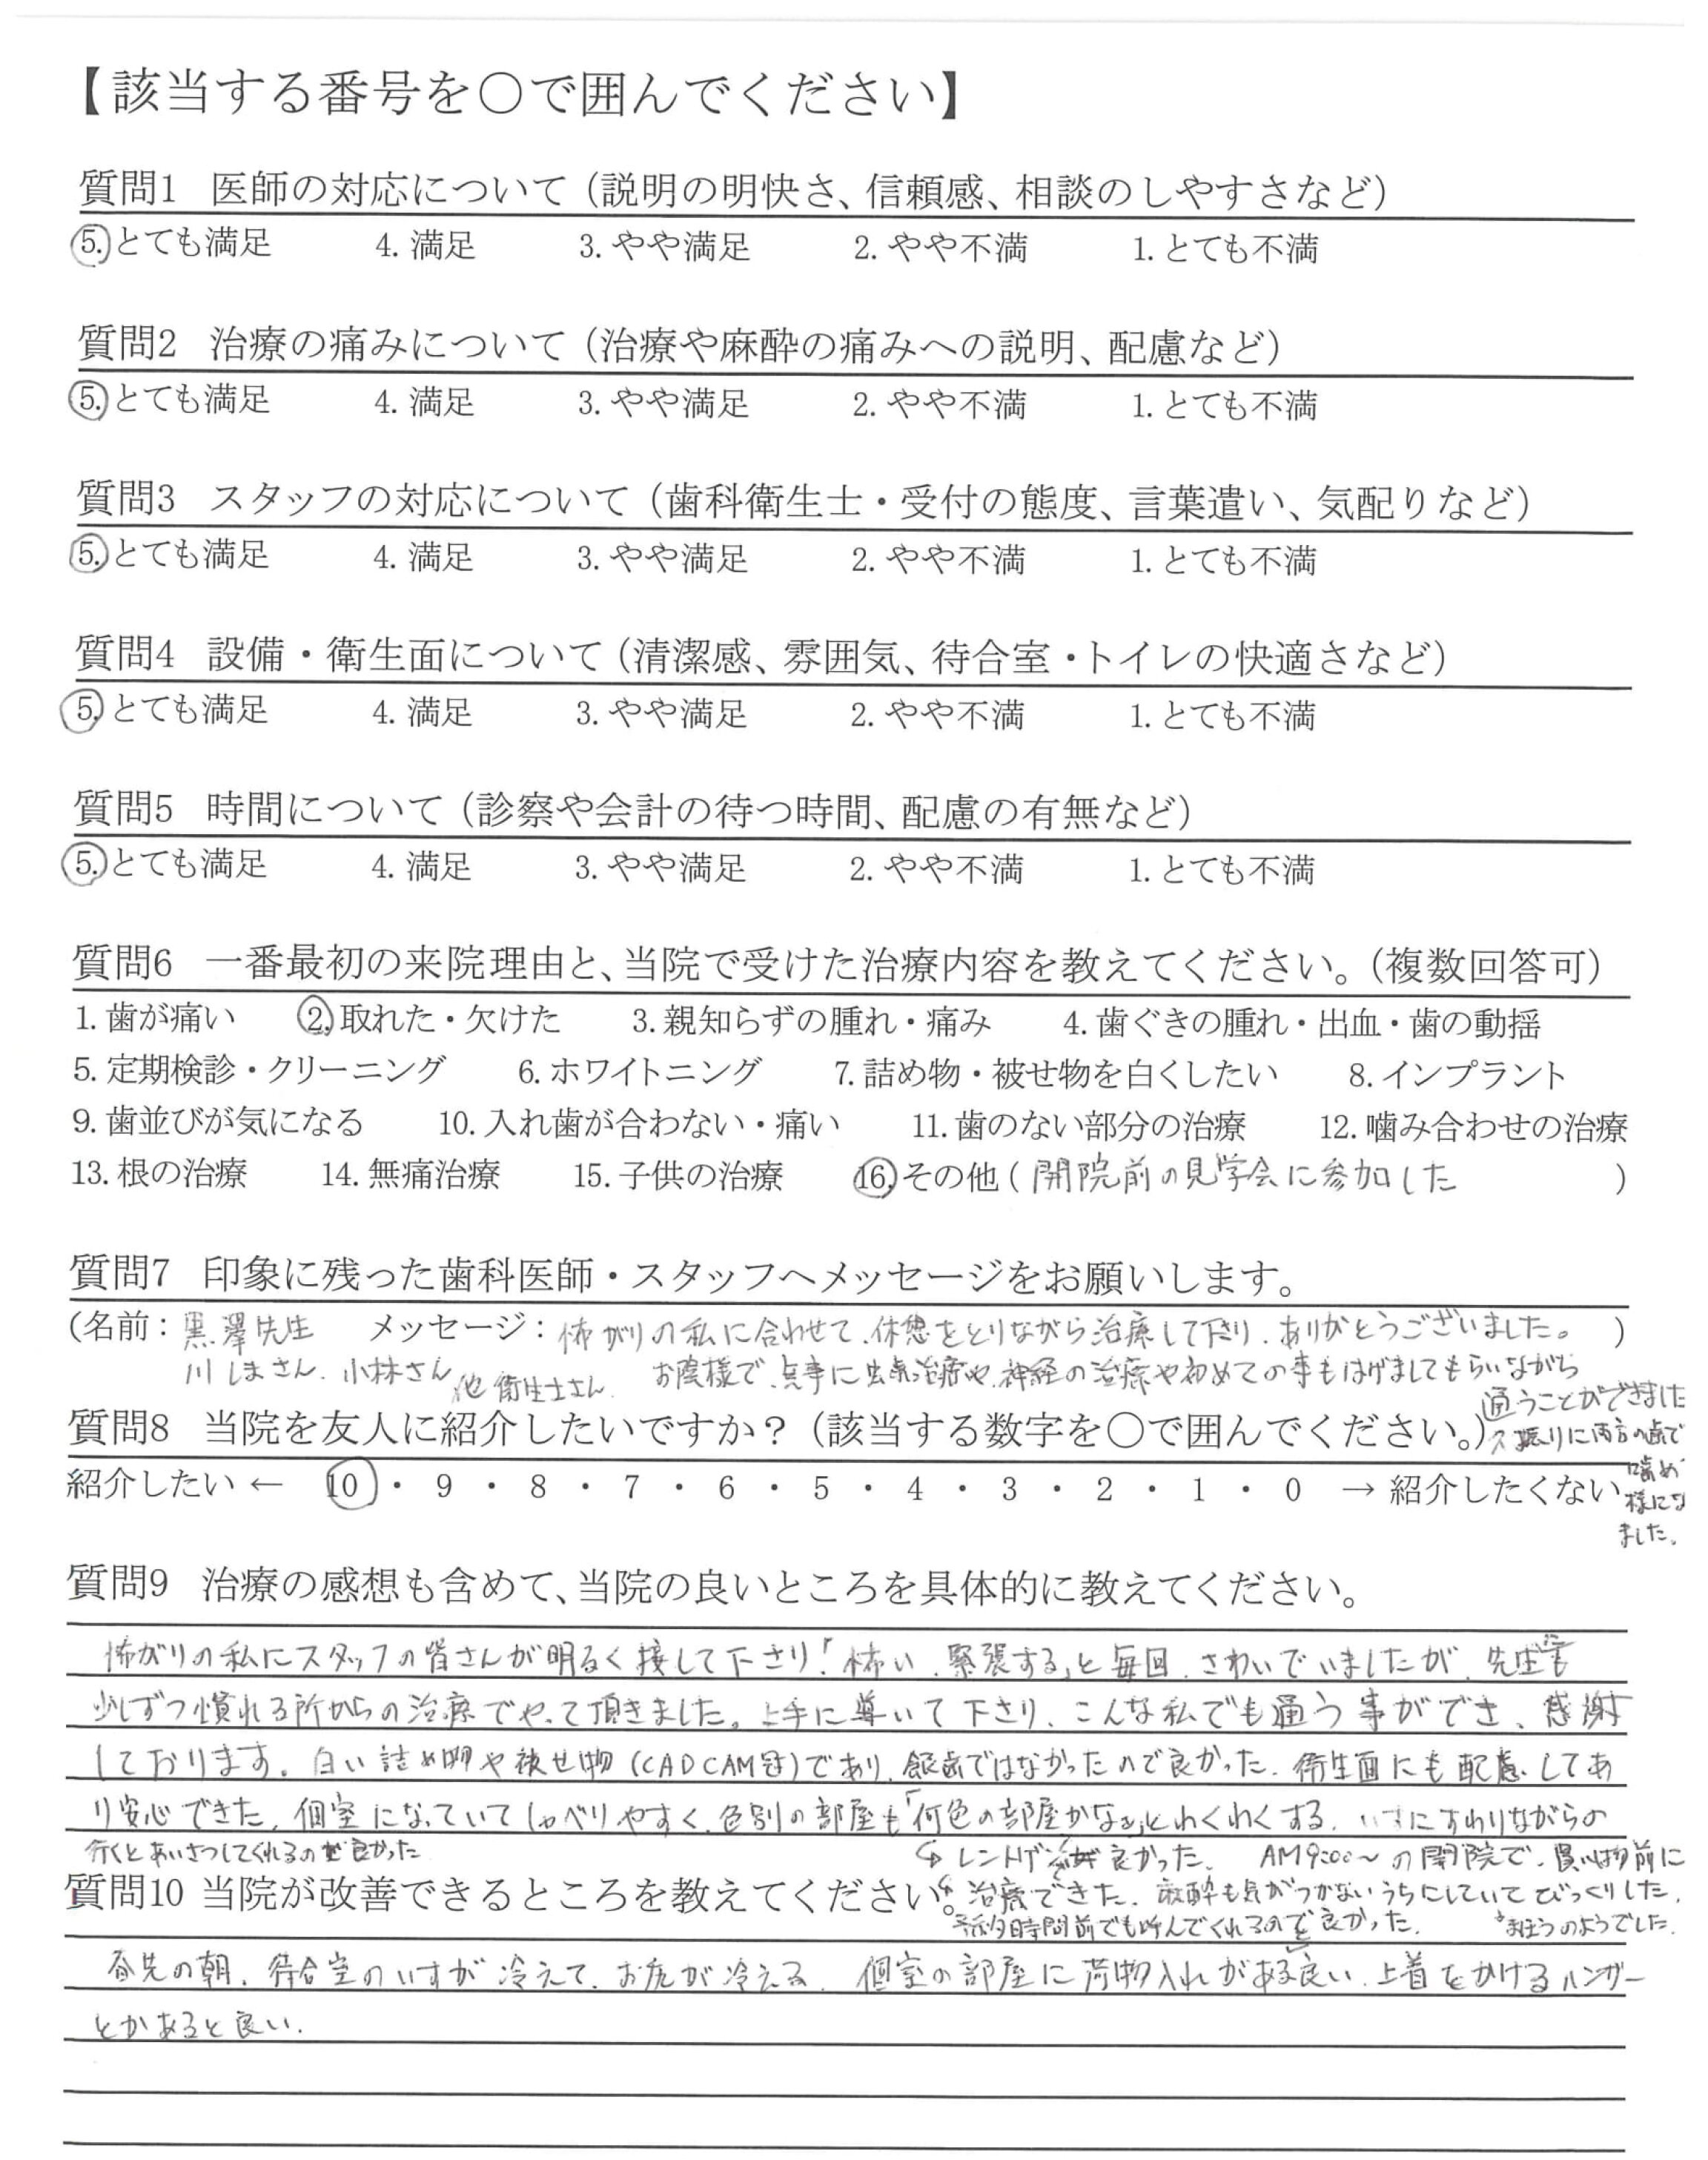 【該当する番号を○で囲んでください】
質問1 医師の対応について（説明の明快さ、信頼感、相談のしやすさなど）
5. とても満足 4. 満足 3. やや満足 2. やや不満 1. とても不満
質問2 治療の痛みについて（治療や麻酔の痛みへの説明、配慮など）
5. とても満足 4. 満足 3. やや満足 2. やや不満 1. とても不満
質問3 スタッフの対応について（歯科衛生士・受付の態度、言葉遣い、気配りなど）
5. とても満足 4. 満足 3. やや満足 2. やや不満 1. とても不満
質問4 設備・衛生面について（清潔感、雰囲気、待合室・トイレの快適さなど）
5. とても満足 4. 満足 3. やや満足 2. やや不満 1. とても不満
質問5 時間について（診察や会計の待つ時間、配慮の有無など）
5. とても満足 4. 満足 3. やや満足 2. やや不満 1. とても不満
質問6 一番最初の来院理由と、当院で受けた治療内容を教えてください。（複数回答可）
1. 歯が痛い 2. 取れた・欠けた 3. 親知らずの腫れ・痛み 4. 歯ぐきの腫れ・出血・歯の動揺
5. 定期検診・クリーニング 6. ホワイトニング 7. 詰め物・被せ物を白くしたい 8. インプラント
9. 歯並びが気になる 10. 入れ歯が合わない・痛い 11. 歯のない部分の治療 12. 噛み合わせの治療
13. 根の治療 14. 無痛治療 15. 子供の治療 16. その他（開院前の見学会に参加した ）
質問7 印象に残った歯科医師・スタッフへメッセージをお願いします。
（名前：黒澤先生 メッセージ：怖がりの私に合わせて、休憩をとりながら治療して下さり、ありがとうございました。）
川しまさん、小林さん 他 衛生士さん お陰様で、 治療や、神経の治療や初めての事もはげましてもらいながら
通うことができました
質問8 当院を友人に紹介したいですか？（該当する数字を○で囲んでください。） 久振りに両方の歯で
噛め
紹介したい ← 10・9・8・7・6・5・4・3・2・1・0 → 紹介したくない 様にな
ました。
質問9 治療の感想も含めて、当院の良いところを具体的に教えてください。
怖がりの私にスタッフの皆さんが明るく接して下さり「怖い、緊張する」と毎回、さわいでいましたが、先生
少しずつ慣れる所からの治療でやって頂きました。上手に導いて下さり、こんな私でも通う事ができ、感謝
しております。白い詰め物や被せ物（CADCAM冠）であり、銀歯ではなかったので良かった。衛生面にも配慮してあ
り安心できた。個室になっていてしゃべりやすく、色別の部屋も「何色の部屋かな」とわくわくする。いすにすわりながらの
行くとあいさつしてくれるのが良かった
レントゲンが良かった。 AM9:00～の開院で、買い物前に
質問10 当院が改善できるところを教えてください。 治療できた。麻酔も気がつかないうちにしていてびっくりした。
時間前でも呼んでくれるので良かった。 まほうのようでした。
春先の朝、待合室のいすが冷えて、お尻が冷える。個室の部屋に荷物入れがあると良い。上着をかけるハンガー
とかあると良い。